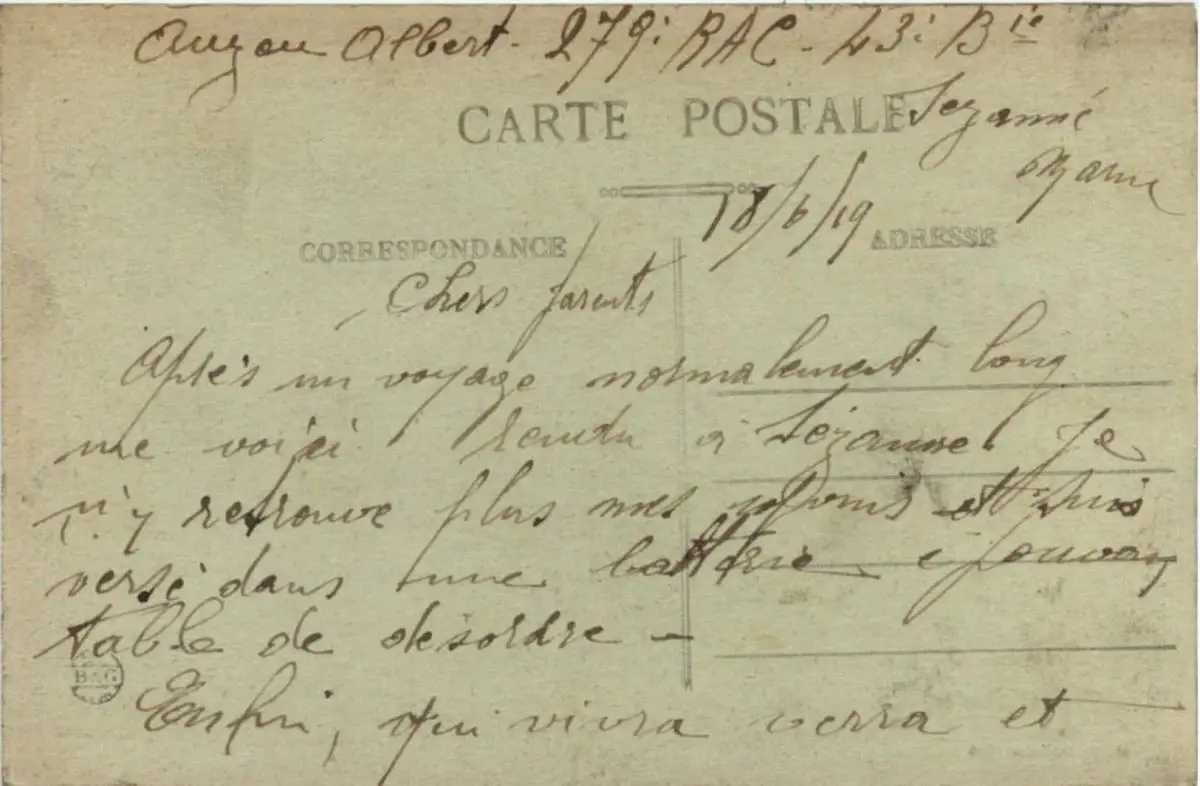 Auzou Albert - 279e RAC - 43e Bie
CARTE POSTALE Sézanne
Marne
18/6/19
CORRESPONDANCE ADRESSE
Chers parents
Après un voyage normalement long
me voici rendu à Sézanne. Je
n'y retrouve plus mes et suis
versé dans une batterie épouvan
table de désordre -
B&G
Enfin, qui vivra verra et